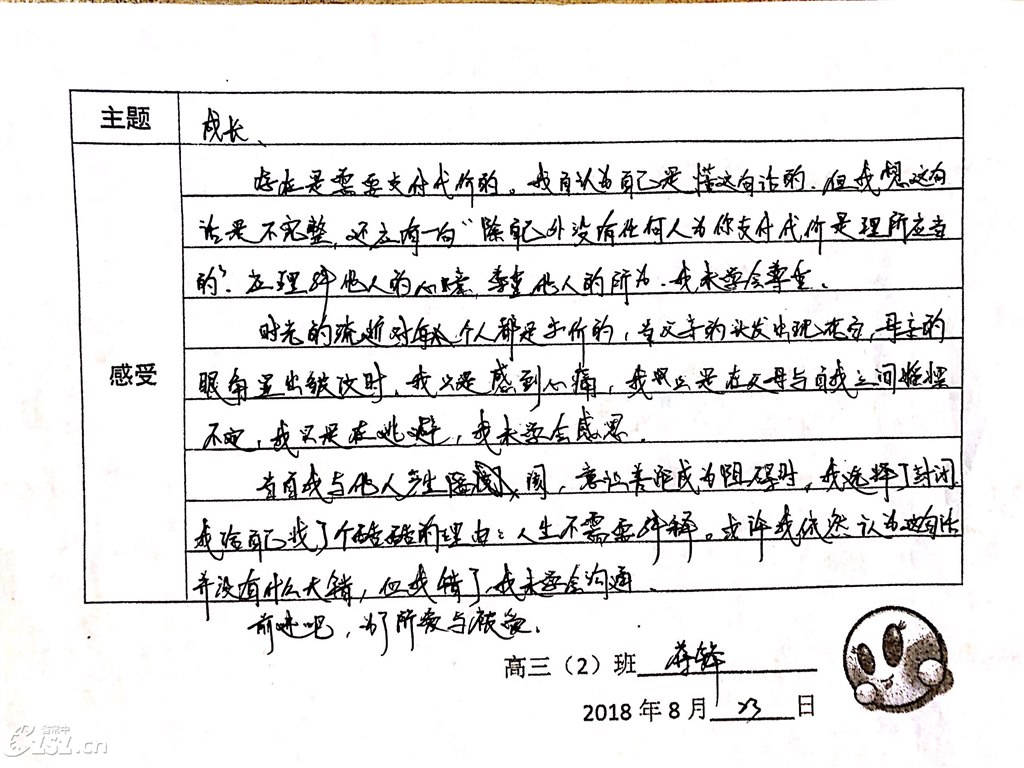 主题
成长、
感受
存在是需要支付代价的。我自认为自己是懂这句话的.但我想这句
话是不完整,还应有一句“除自己外没有任何人为你支付代价是理所应当
的”.应理解他人的心境,尊重他人的所为.我未学会尊重.
时光的流逝对每个人都是于价的,当父亲的头发出现花白,母亲的
眼角显出皱纹时,我只是感到心痛,我只是在父母与自我之间摇摆
不定,我只是在逃避,我未学会感恩.
当自我与他人产生隔阂,意识差距成为阻碍时,我选择了封闭
我给自己找了个酷酷的理由:人生不需要解释。或许我依然认为这句话
并没有什么大错,但我错了,我未学会沟通.
前进吧,为了所爱与被爱.
高三(2)班
2018年8月23日
.cn